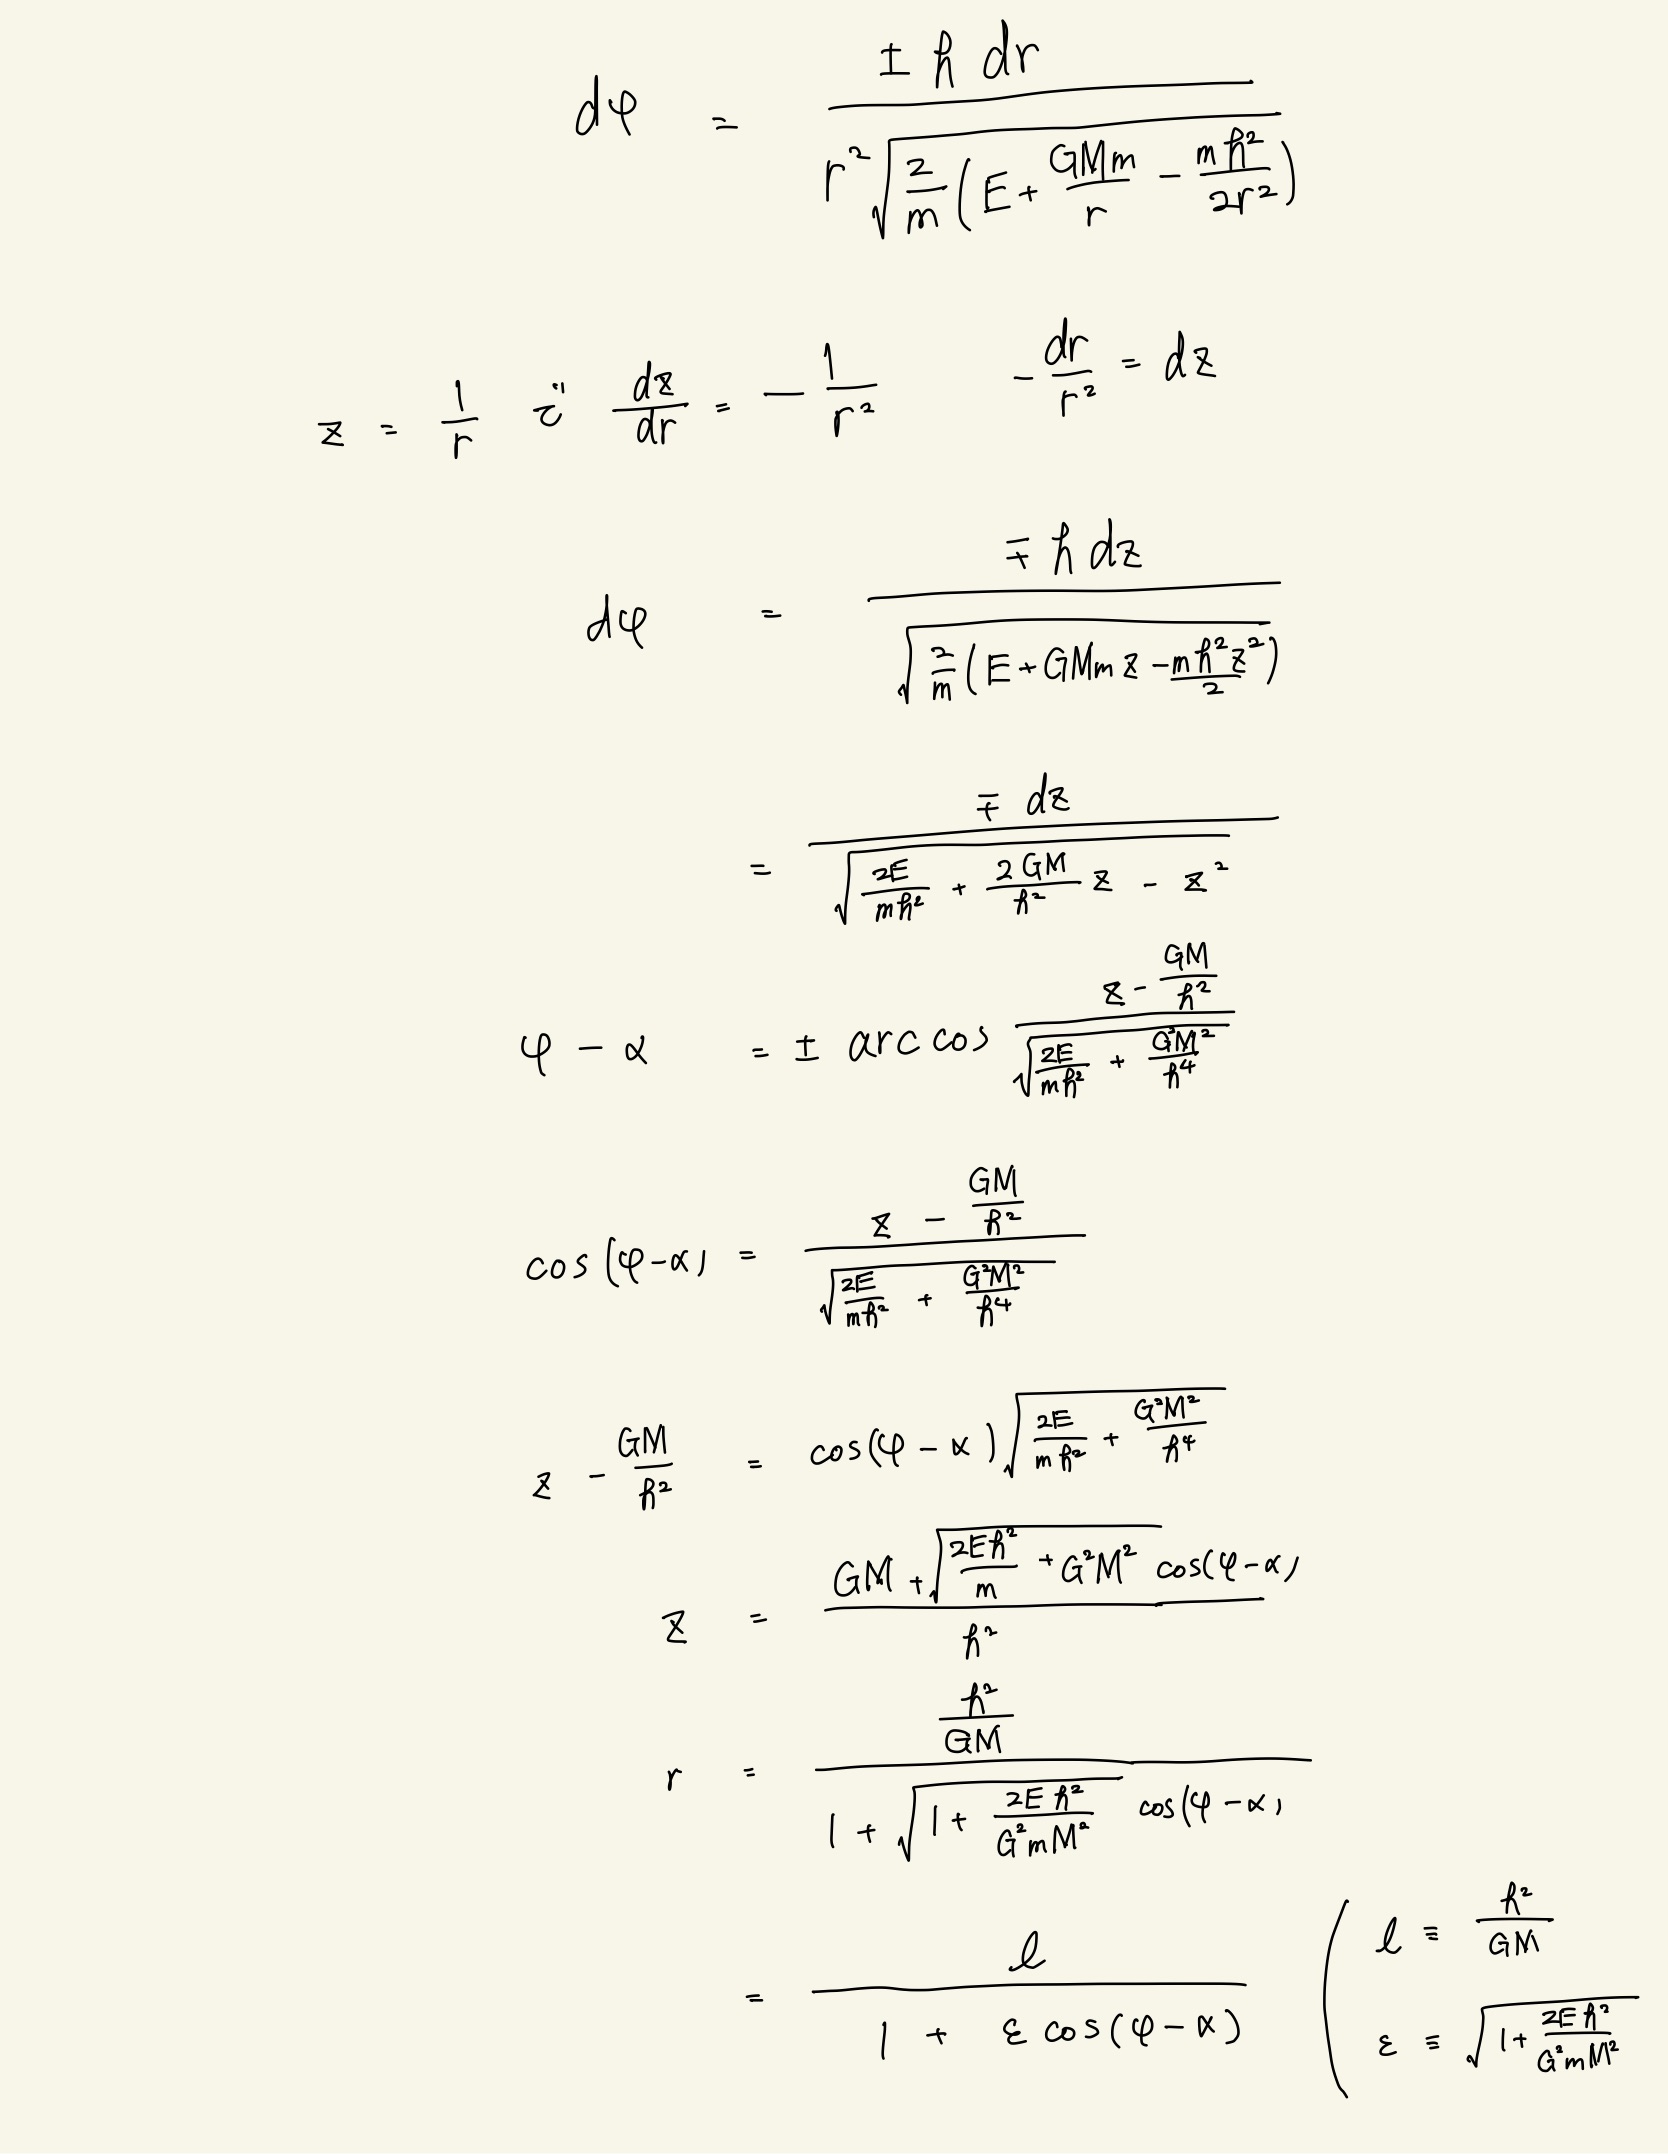 dφ = ± h dr / ( r² √( 2/m ( E + GMm/r − mh²/2r² ) ) )
z = 1/r で dz/dr = − 1/r²  − dr/r² = dz
dφ = ∓ h dz / √( 2/m ( E + GMm z − mh²z²/2 ) )
= ∓ dz / √( 2E/mh² + 2GM/h² z − z² )
φ − α = ± arccos ( z − GM/h² ) / √( 2E/mh² + G²M²/h⁴ )
cos(φ−α) = ( z − GM/h² ) / √( 2E/mh² + G²M²/h⁴ )
z − GM/h² = cos(φ − α) √( 2E/mh² + G²M²/h⁴ )
z = ( GM + √( 2Eh²/m + G²M² ) cos(φ−α) ) / h²
r = ( h²/GM ) / ( 1 + √( 1 + 2Eh²/G²mM² ) cos(φ−α) )
= l / ( 1 + ε cos(φ−α) )
( l ≡ h²/GM
ε ≡ √( 1 + 2Eh²/G²mM² )